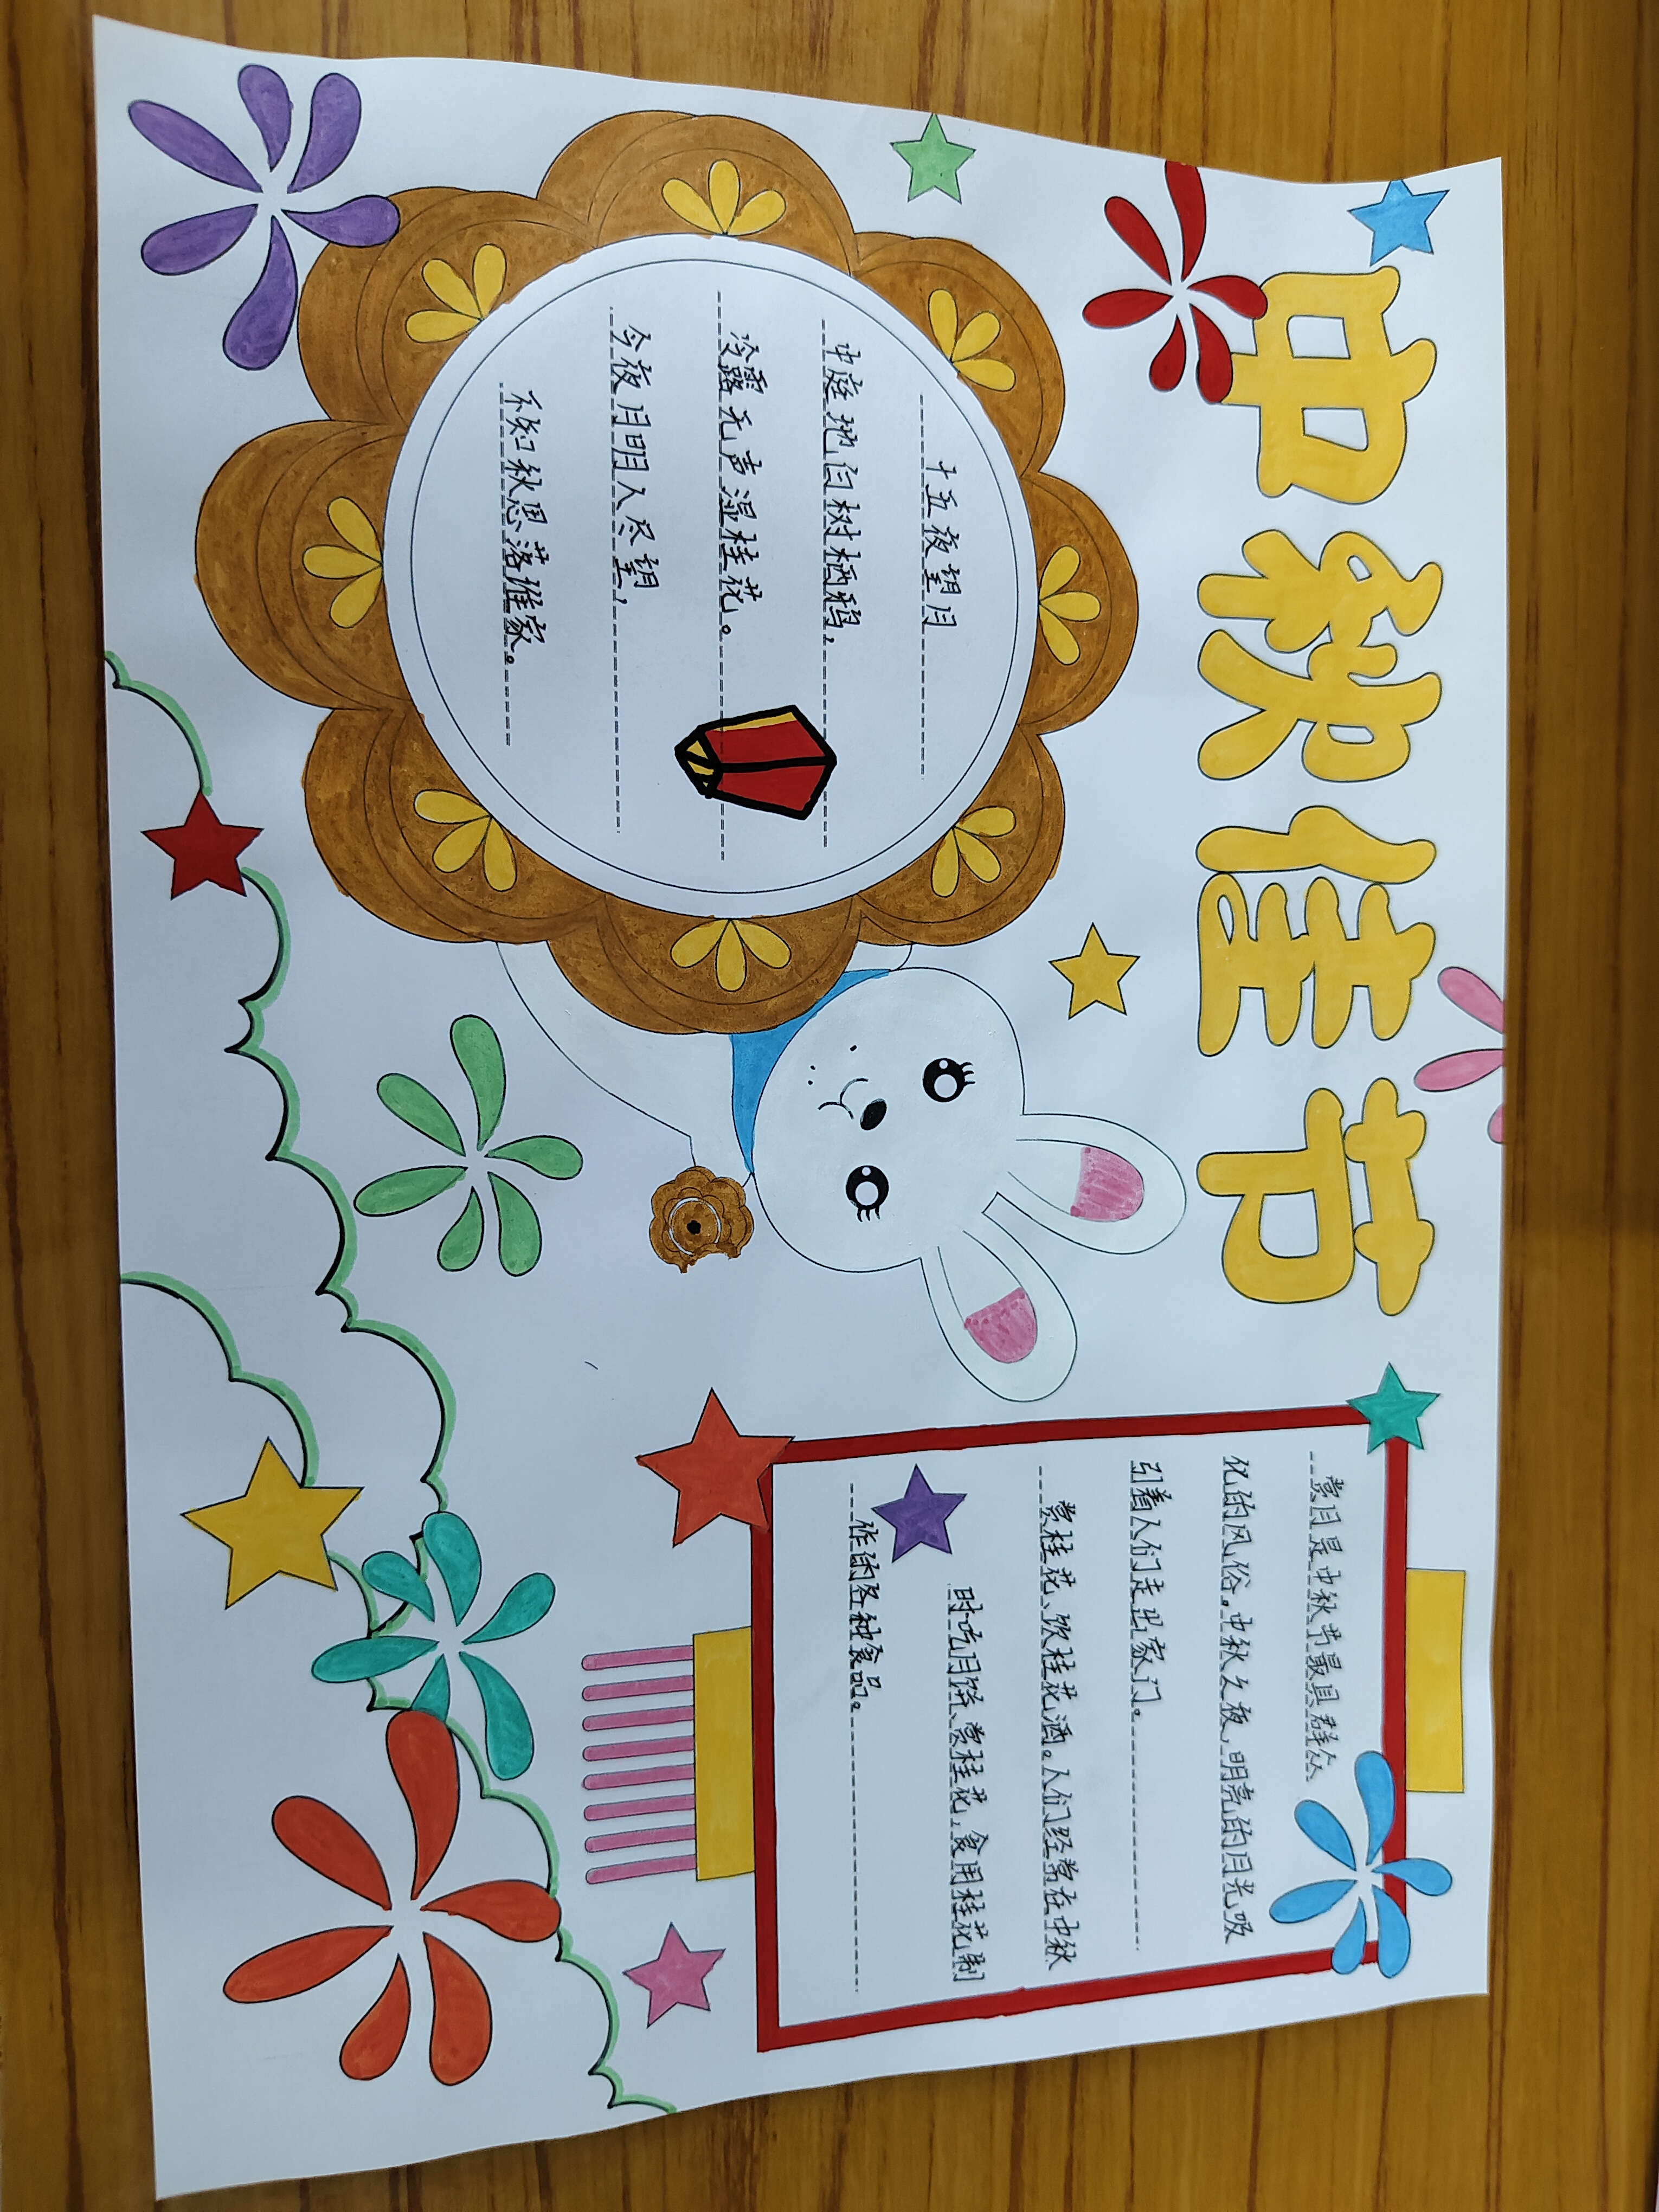 中秋佳节
十五夜望月
中庭地白树栖鸦，
冷露无声湿桂花。
今夜月明人尽望，
不知秋思落谁家。
赏月是中秋节最具群众
化的风俗。中秋之夜，明亮的月光吸
引着人们走出家门。
赏桂花、饮桂花酒。人们经常在中秋
时吃月饼、赏桂花，食用桂花制
作的各种食品。